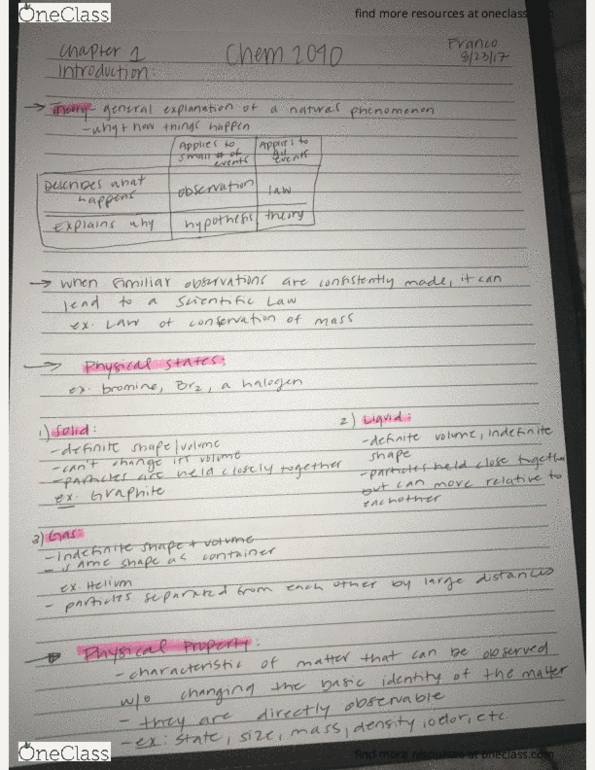 OneClass
find more resources at oneclass.com
Chapter 1
Chem 2090
Franco
8/23/17
Introduction:
→ Theory - general explanation of a natural phenomenon
- why + how things happen
Applies to small # of events
Applies to all events
Describes what happens
observation
law
explains why
hypothesis
theory
→ when similiar observations are consistently made, it can
lead to a scientific Law
ex. Law of conservation of mass
→ Physical states:
ex. bromine, Br2, a halogen
1) Solid:
- definite shape/volume
- can't change its volume
- particles are held closely together
ex. Graphite
2) Liquid:
- definite volume, indefinite
shape
- particles held close together
but can move relative to
eachother
3) Gas:
- indefinite shape + volume
- same shape as container
ex. Helium
- particles separated from each other by large distances
→ Physical Property:
- characteristic of matter that can be observed
w/o changing the basic identity of the matter
- they are directly observable
- ex: state, size, mass, density, odor, etc
OneClass
find more resources at oneclass.com